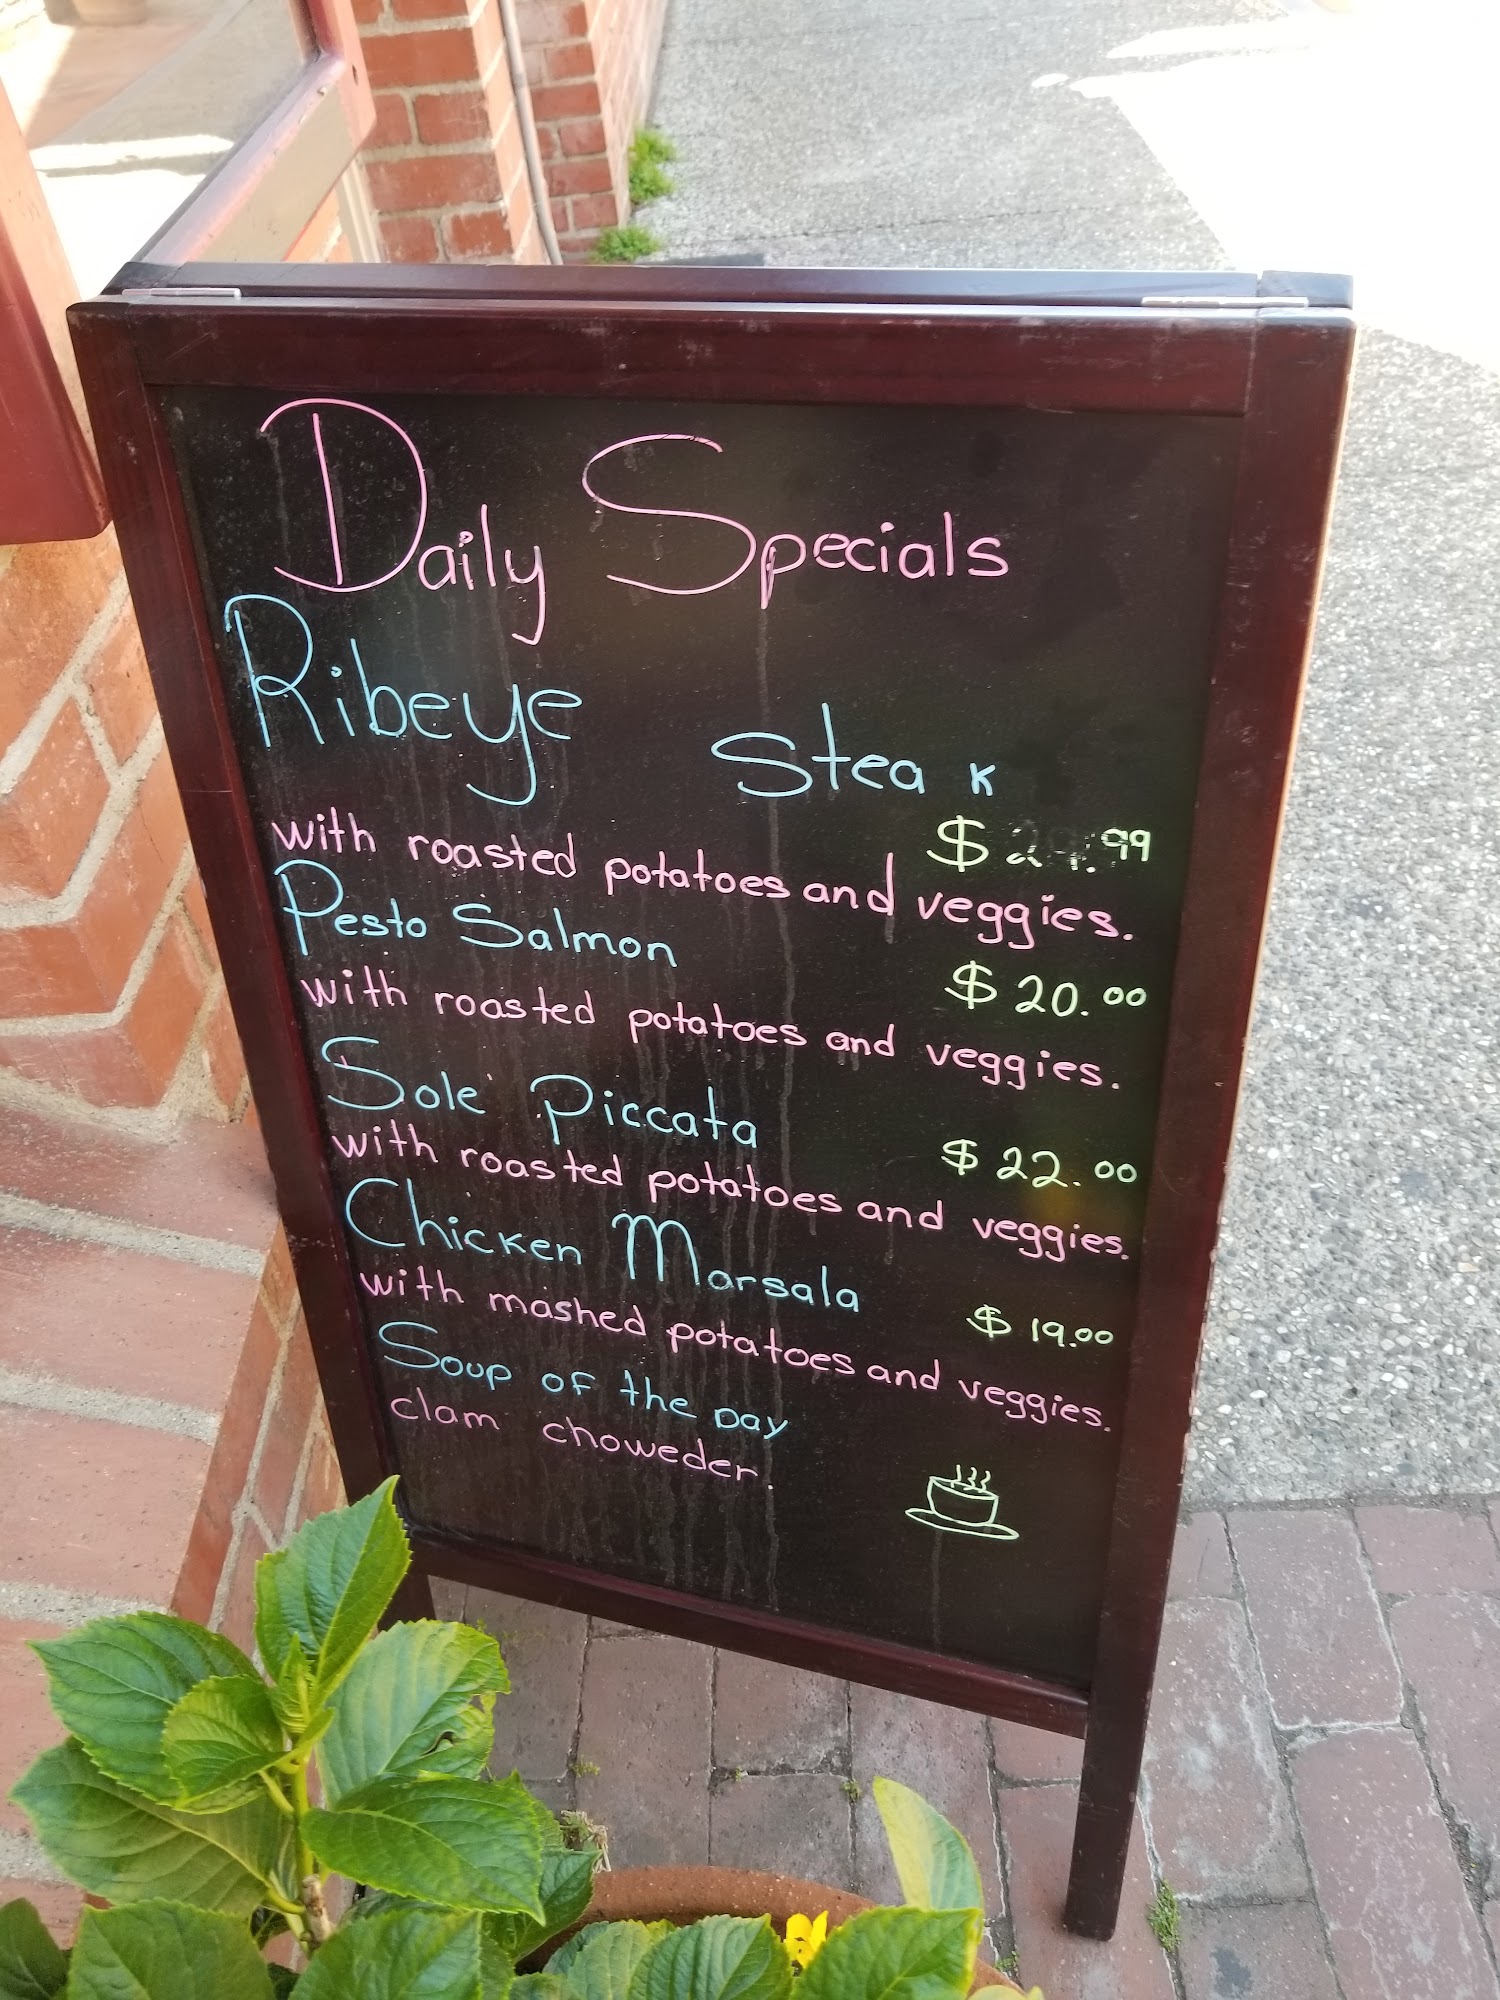 Daily Specials
Ribeye Steak
$ .99
with roasted potatoes and veggies.
Pesto Salmon
$20.00
with roasted potatoes and veggies.
Sole Piccata
$22.00
with roasted potatoes and veggies.
Chicken Marsala
$19.00
with mashed potatoes and veggies.
Soup of the Day
clam choweder.